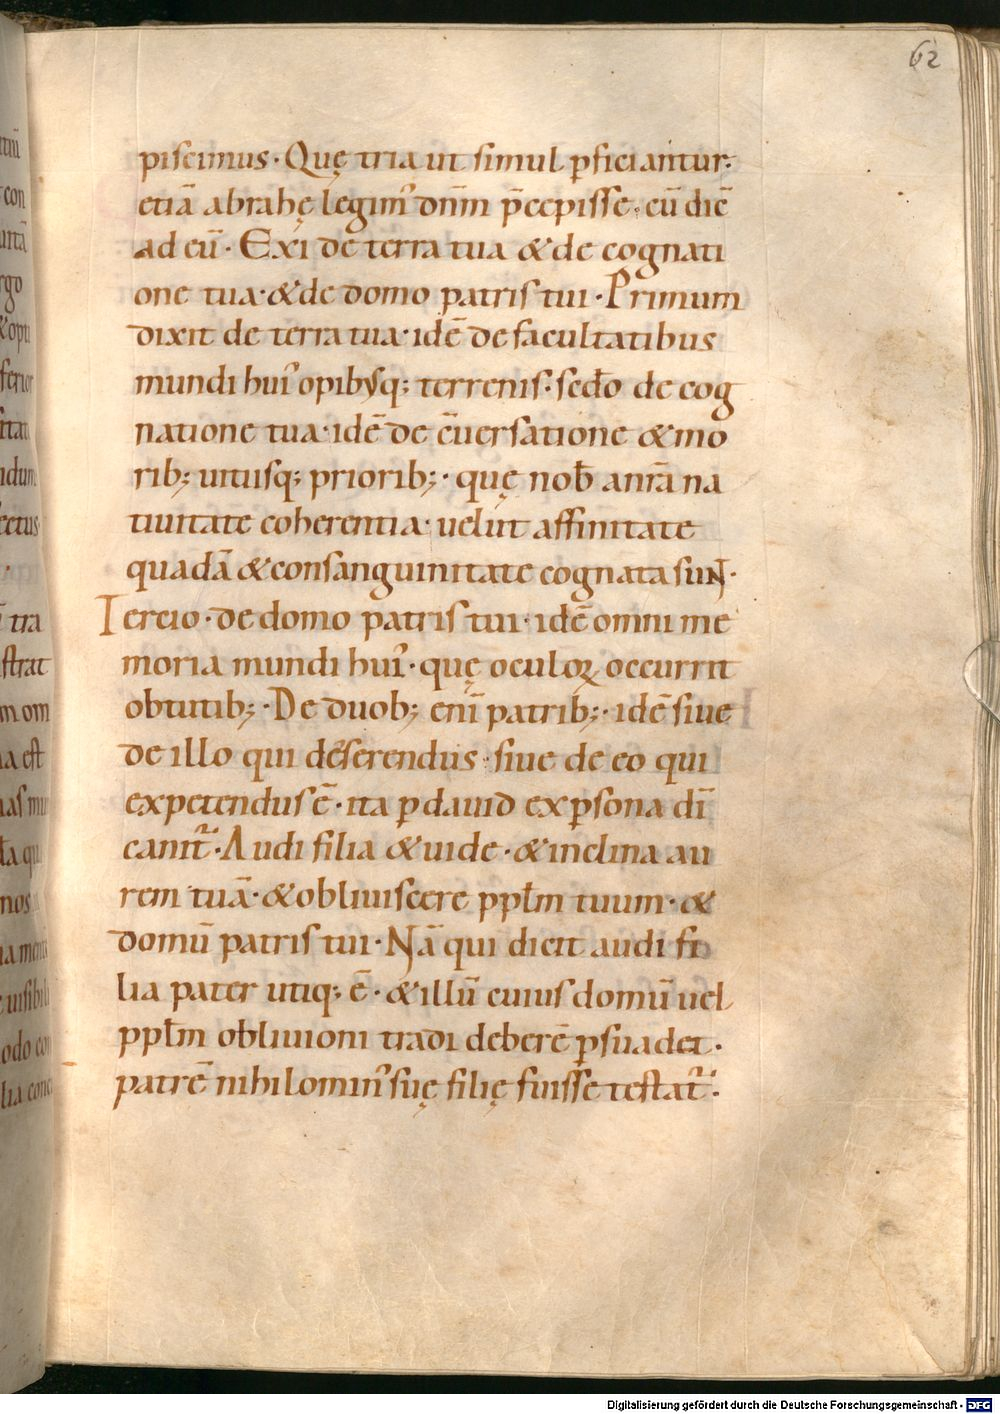 62
piscimus · Quę tria ut simul ꝑficiantur·
etiā abrahę legim᾽ dnm̄ p̄cepisse · cū dic̄
ad eū · Exi de terra tua & de cognati
one tua · & de domo patris tui · Primum
dixit de terra tua · idē de facultatibus
mundi hui᾽ opibusq; terrenis · sedo de cog
natione tua · idē de c̄uersatione & mo
rib; uitiisq; priorib; · quę nob̄ anr̄a na
tiuitate coherentia · uelut affinitate
quadā & consanguinitate cognata suNt ·
Tercio · de domo patris tui · idē omni me
moria mundi hui᾽ · quę oculoꝝ occurrit
obtutib; · De duob; eni᷑ patrib; · idē siue
de illo qui deserendus · siue de eo qui
expetendus ē · ita ꝑ dauid ex ꝑsona dī
canit᷑ · Audi filia & uide · & inclina au
rem tuā · & obliuiscere pplm̄ tuum · &
domū patris tui · Nā qui dicit audi fi
lia pater utiq; ē · & illū cuius domū uel
pplm̄ obliuioni tradi deberē ꝑsuadet ·
patrē nihilomin᾽ suę filię fuisse testat᷑ ·
Digitalisierung gefördert durch die Deutsche Forschungsgemeinschaft - DFG